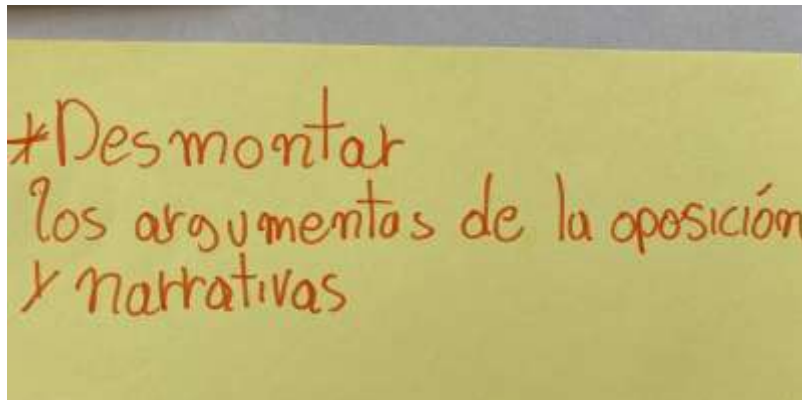 *Desmontar
los argumentos de la oposición
y narrativas